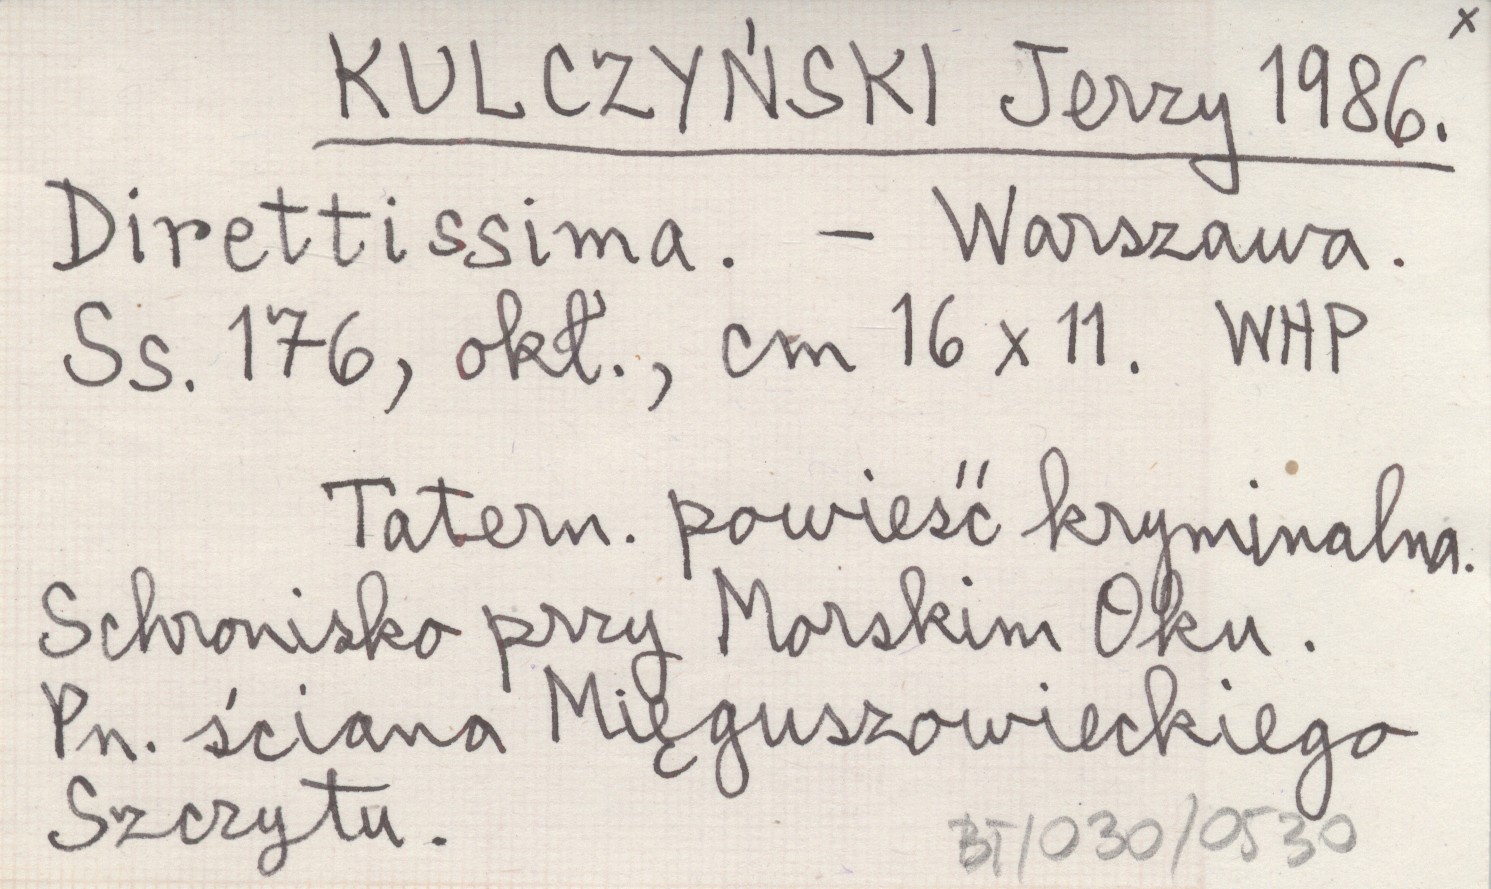 x
KULCZYŃSKI Jerzy 1986.
Direttissima. – Warszawa.
Ss. 176, okł., cm 16 x 11. WHP
Tatern. powieść kryminalna.
Schronisko przy Morskim Oku.
Pn. ściana Mięguszowieckiego
Szczytu.
BT/030/0530